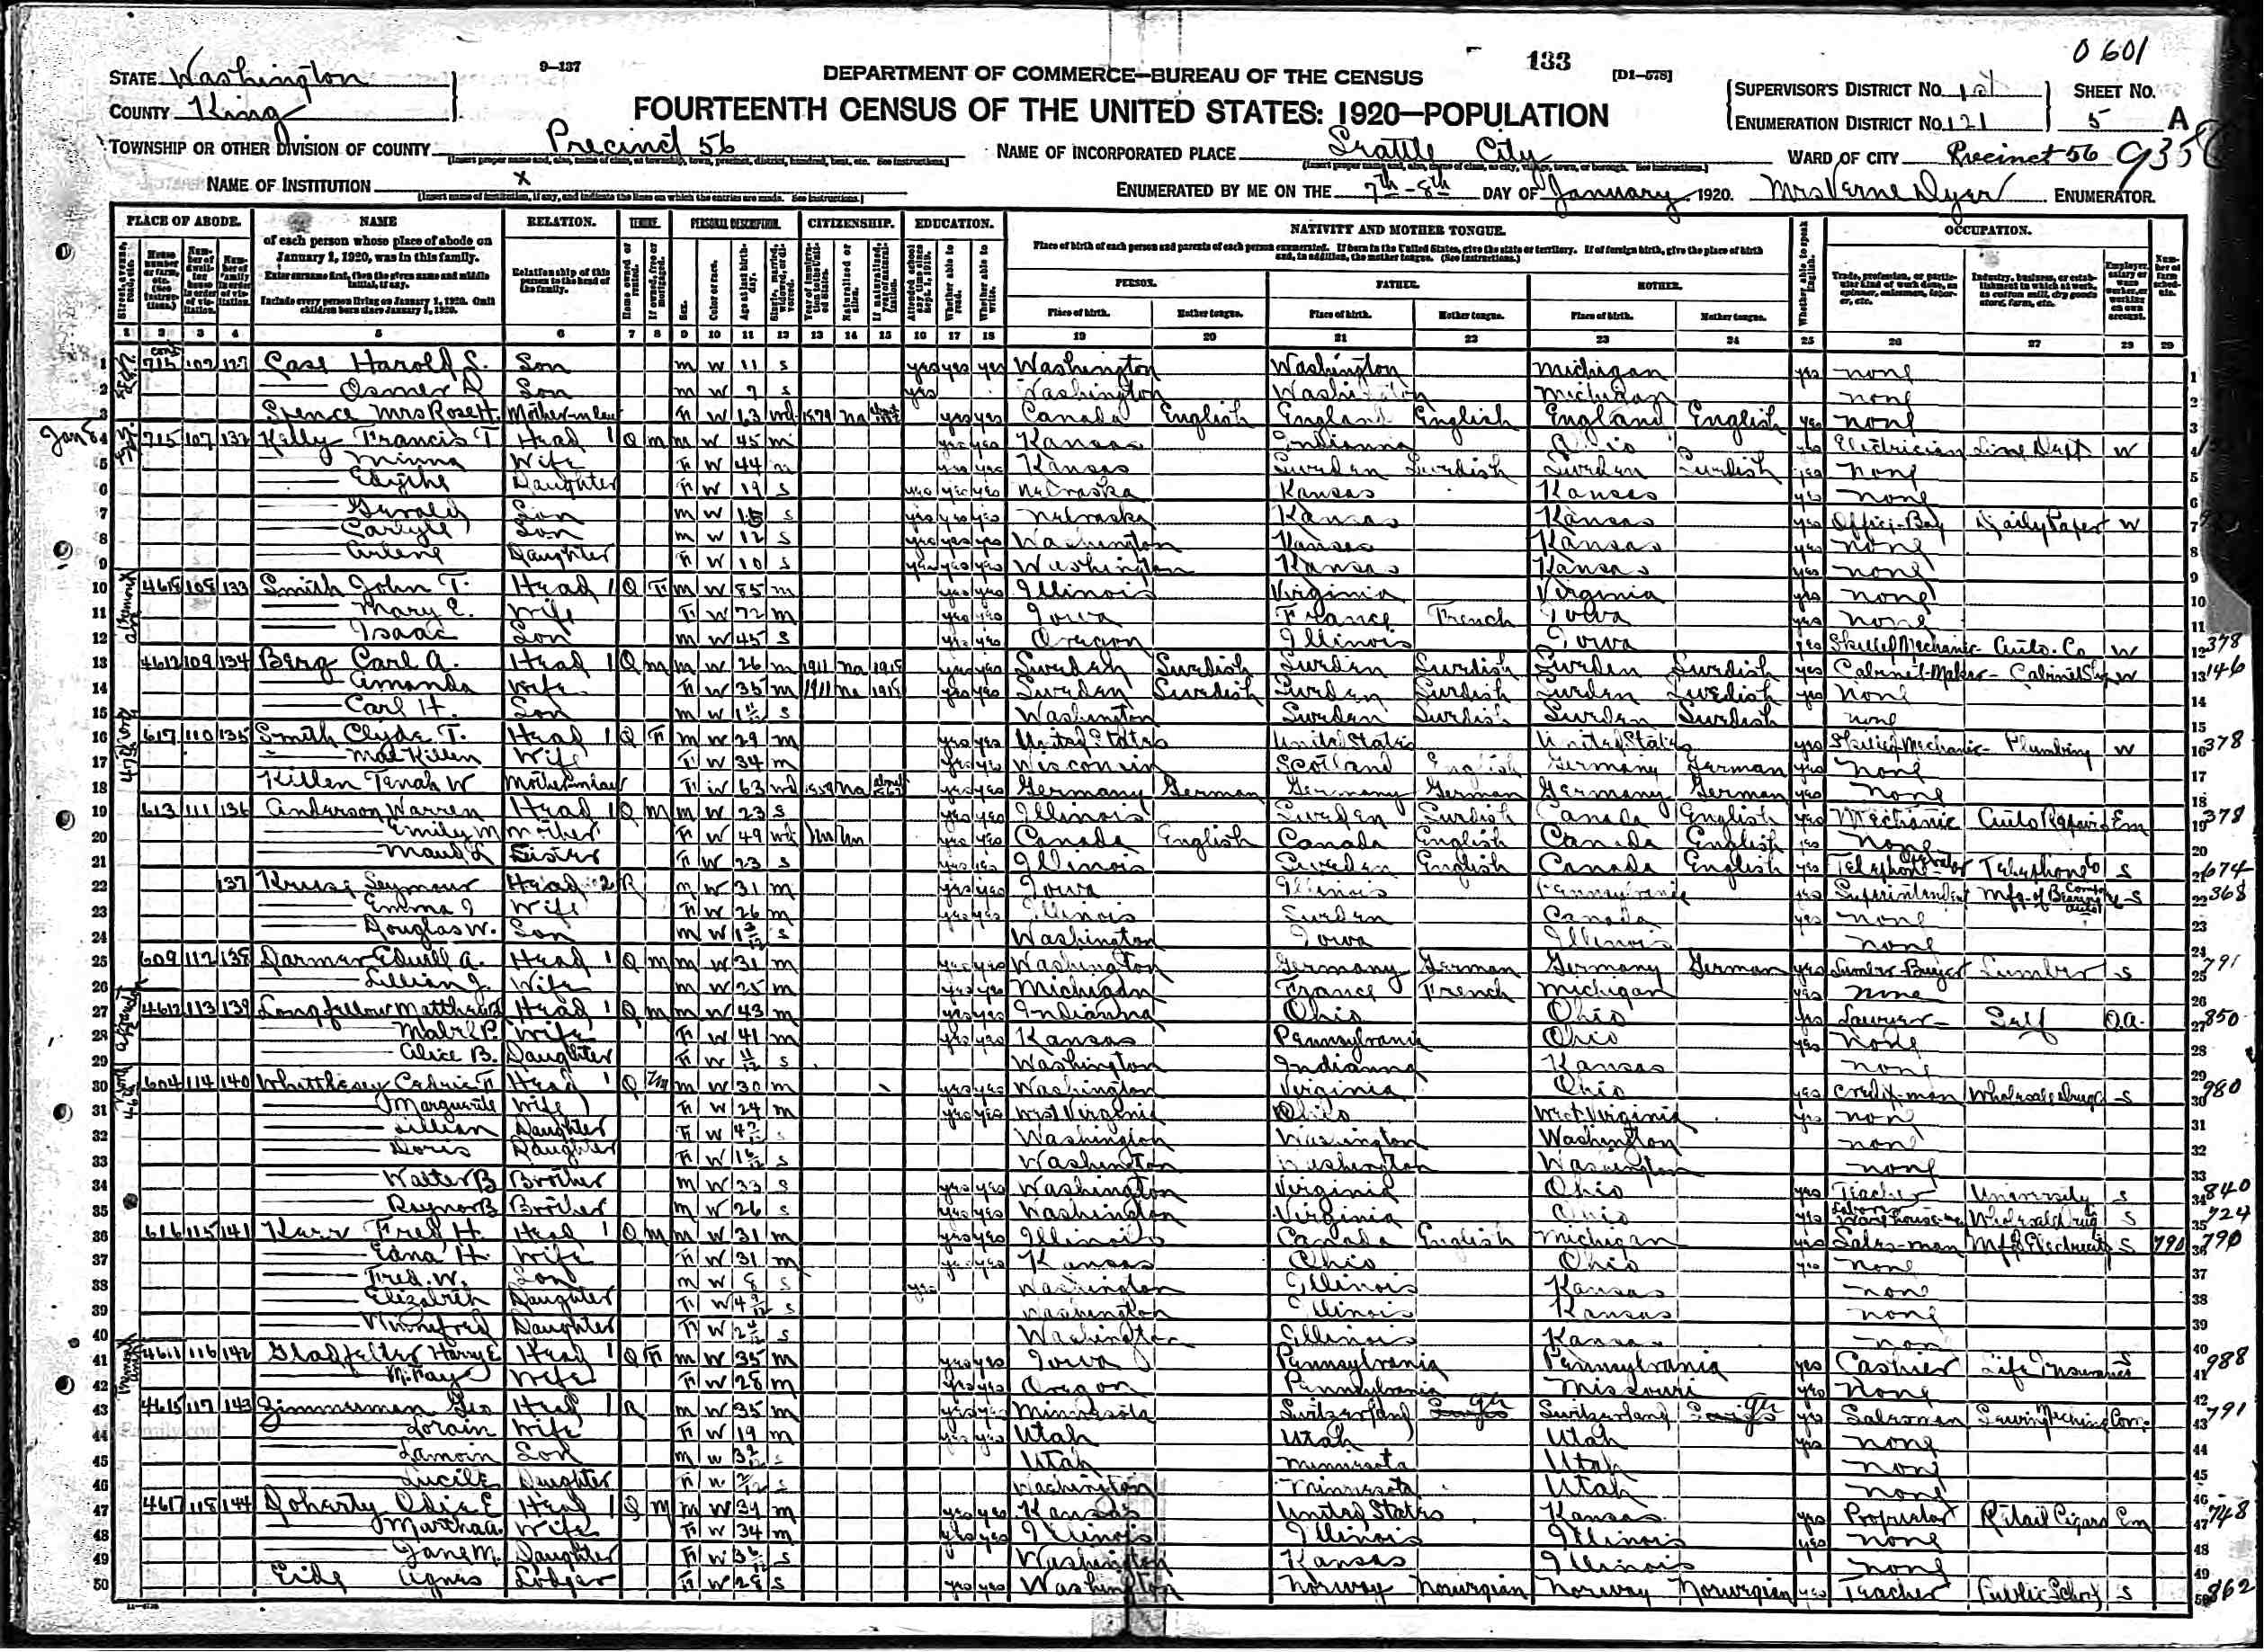 0601
STATE Washington
9-137
133
[D1-578]
DEPARTMENT OF COMMERCE—BUREAU OF THE CENSUS
SUPERVISOR'S DISTRICT NO. 1st SHEET NO.
COUNTY King
FOURTEENTH CENSUS OF THE UNITED STATES: 1920—POPULATION
ENUMERATION DISTRICT NO. 121 5 A
TOWNSHIP OR OTHER DIVISION OF COUNTY Precinct 56 NAME OF INCORPORATED PLACE Seattle City WARD OF CITY Precinct 56
NAME OF INSTITUTION x ENUMERATED BY ME ON THE 7th-8th DAY OF January, 1920. Mrs Verne Dyer ENUMERATOR.
PLACE OF ABODE. NAME RELATION. TENURE. PERSONAL DESCRIPTION. CITIZENSHIP. EDUCATION. NATIVITY AND MOTHER TONGUE. OCCUPATION.
of each person whose place of abode on January 1, 1920, was in this family.
Enter surname first, then the given name and middle initial, if any.
Include every person living on January 1, 1920. Omit children born since January 1, 1920.
Relationship of this person to the head of the family.
Place of birth of each person and parents of each person enumerated. If born in the United States, give the state or territory. If of foreign birth, give the place of birth and, in addition, the mother tongue. (See instructions.)
PERSON. FATHER. MOTHER.
Place of birth. Mother tongue. Place of birth. Mother tongue. Place of birth. Mother tongue.
1 2 3 4 5 6 7 8 9 10 11 12 13 14 15 16 17 18 19 20 21 22 23 24 25 26 27 28 29
1 Case Harold S. Son m w 11 s yes yes yes Washington Washington Michigan yes none
2 Osmer D Son m w 7 s yes Washington Washington Michigan none
3 Spence Mrs Rose H. Mother-in-law F W 63 wd 1879 na yes yes Canada English England English England English yes none
4 715 107 132 Kelly Francis T Head 1 O m m w 45 m yes yes Kansas Indianna Ohio yes Electrician Line Dept W
5 Minna Wife F W 44 m yes yes Kansas Sweden Swedish Sweden Swedish yes none
6 Edythe Daughter F W 19 s yes yes yes Nebraska Kansas Kansas yes none
7 Gerald Son m W 15 s yes yes yes Nebraska Kansas Kansas yes Office-Boy Daily Paper W
8 Carlyle Son m w 12 s yes yes yes Washington Kansas Kansas yes none
9 Arlene Daughter F W 10 s yes yes yes Washington Kansas Kansas yes none
10 4618 108 133 Smith John T. Head 1 O F m w 85 m yes yes Illinois Virginia Virginia yes none
11 Mary E. Wife F W 72 m yes yes Iowa France French Iowa yes none
12 Isaac Son m W 45 s yes yes Oregon Illinois Iowa yes Skilled Mechanic Auto. Co W 378
13 4612 109 134 Berg Carl A. Head 1 O m m w 26 m 1911 na 1918 yes yes Sweden Swedish Sweden Swedish Sweden Swedish yes Cabinet-Maker Cabinet Shop W 146
14 Amanda Wife F W 35 m 1911 na 1918 yes yes Sweden Swedish Sweden Swedish Sweden Swedish yes none
15 Carl H. Son m w s Washington Sweden Swedish Sweden Swedish none
16 617 110 135 Smith Clyde T. Head 1 O F m w 29 m yes yes United States United States United States yes Skilled Mechanic Plumbing W 378
17 Mae Killen Wife F W 34 m yes yes Wisconsin Scotland English Germany German yes none
18 Killen Tenah W Mother-in-law F W 63 wd na yes yes Germany German Germany German Germany German yes none
19 613 111 136 Anderson Warren Head 1 O m m w 23 s yes yes Illinois Sweden Swedish Canada English yes Mechanic Auto Repairs Em 378
20 Emily M Mother F W 49 wd Un Un yes yes Canada English Canada English Canada English yes none
21 Maud L Sister F W 23 s yes yes Illinois Sweden English Canada English yes Telephone Operator Telephone Co S 674
22 137 Kruse Seymour Head 2 R m w 31 m yes yes Iowa Illinois Pennsylvania yes Superintendent Mfg. of Bearing Comp S 368
23 Emma I Wife F W 26 m yes yes Illinois Sweden Canada yes none
24 Douglas W. Son m w s Washington Iowa Illinois none
25 609 112 138 Darmer Edwill A. Head 1 O m m w 31 m yes yes Washington Germany German Germany German yes Lumber-Buyer Lumber S 791
26 Lillian J. Wife m W 25 m yes yes Michigan France French Michigan yes none
27 4612 113 139 Longfellow Matthew Head 1 O m m w 43 m yes yes Indianna Ohio Ohio yes Lawyer Self O.A. 850
28 Mabel P. Wife F W 41 m yes yes Kansas Pennsylvania Ohio yes none
29 Alice B. Daughter F W 11/12 s Washington Indianna Kansas none
30 604 114 140 Whitthesey Cedric F. Head 1 O m m w 30 m yes yes Washington Virginia Ohio yes Credit-man Wholesale Drug S 980
31 Marguerite Wife F W 24 m yes yes West Virginia Ohio West Virginia yes none
32 Lillian Daughter F W s Washington Washington Washington none
33 Doris Daughter F W s Washington Washington Washington none
34 Walter B Brother m W 33 s yes yes Washington Virginia Ohio yes Teacher University S 840
35 Raynor B Brother m W 26 s yes yes Washington Virginia Ohio yes Laborer Warehouse Wholesale Drug S 724
36 616 115 141 Kerr Fred H. Head 1 O m m W 31 m yes yes Illinois Canada English Michigan yes Sales-man Mfg Electricity S 790 790
37 Edna H. Wife F W 31 m yes yes Kansas Ohio Ohio yes none
38 Fred. W. Son m W 8 s yes Washington Illinois Kansas none
39 Elizabeth Daughter F W s Washington Illinois Kansas none
40 Winnefred Daughter F W s Washington Illinois Kansas none
41 4611 116 142 Gladfelter Harry E Head 1 O F m w 35 m yes yes Iowa Pennsylvania Pennsylvania yes Cashier Life Insurance S 988
42 Wife F W 28 m yes yes Oregon Pennsylvania Missouri yes none
43 4615 117 143 Zimmerman Geo Head 1 R m W 35 m yes yes Minnesota Switzerland Ger Switzerland Ger yes Salesman Sewing Machine Com. 791
44 Lorain Wife F W 19 m yes yes Utah Utah Utah yes none
45 Lamoin Son m w s Utah Minnesota Utah none
46 Lucile Daughter F w s Washington Minnesota Utah none
47 4617 118 144 Doherty Odie E Head 1 O m m W 39 m yes yes Kansas United States Kansas yes Proprietor Retail Cigars Em 748
48 Martha A. Wife F W 34 m yes yes Illinois Illinois Illinois yes none
49 Jane M. Daughter F W s Washington Kansas Illinois none
50 Eide Agnes Lodger F W 28 s yes yes Washington Norway Norwegian Norway Norwegian yes Teacher Public School S 862